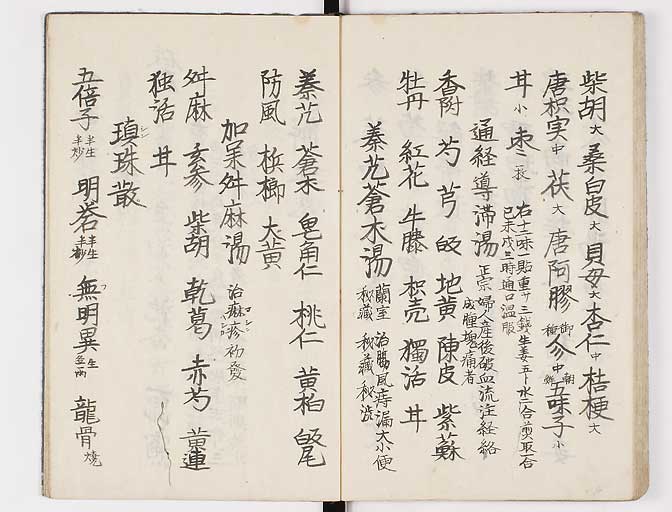 柴胡大 桑白皮大 貝母大 杏仁中 桔梗大
唐枳実中 茯大 唐阿膠 御種 参中 朝鮮 五味子小
甘小 棗二枚 右十二味一貼重サ三錢生姜五片水二合煎取一合
巳未戌三時通口温服
通経導滞湯 正宗 婦人産後破血流注経絡
成腫塊痛者
香附 芍 芎 皈 地黄 陳皮 紫蘇
牡丹 紅花 牛膝 枳壳 獨活 甘
蓁艽蒼朮湯 蘭室秘藏 治腸風痔漏大小便
秘藏 秘渋
蓁艽 蒼朮 皂角仁 桃仁 黄柏 皈尾
防風 梹榔 大黄
加呆舛麻湯 治麻疹初發
舛麻 玄参 柴胡 乾葛 赤芍 黄連
独活 甘
瑱珠散 シンシン
五倍子 半生半炒 明礬 半生半炒 無明異 生 龍骨 焼